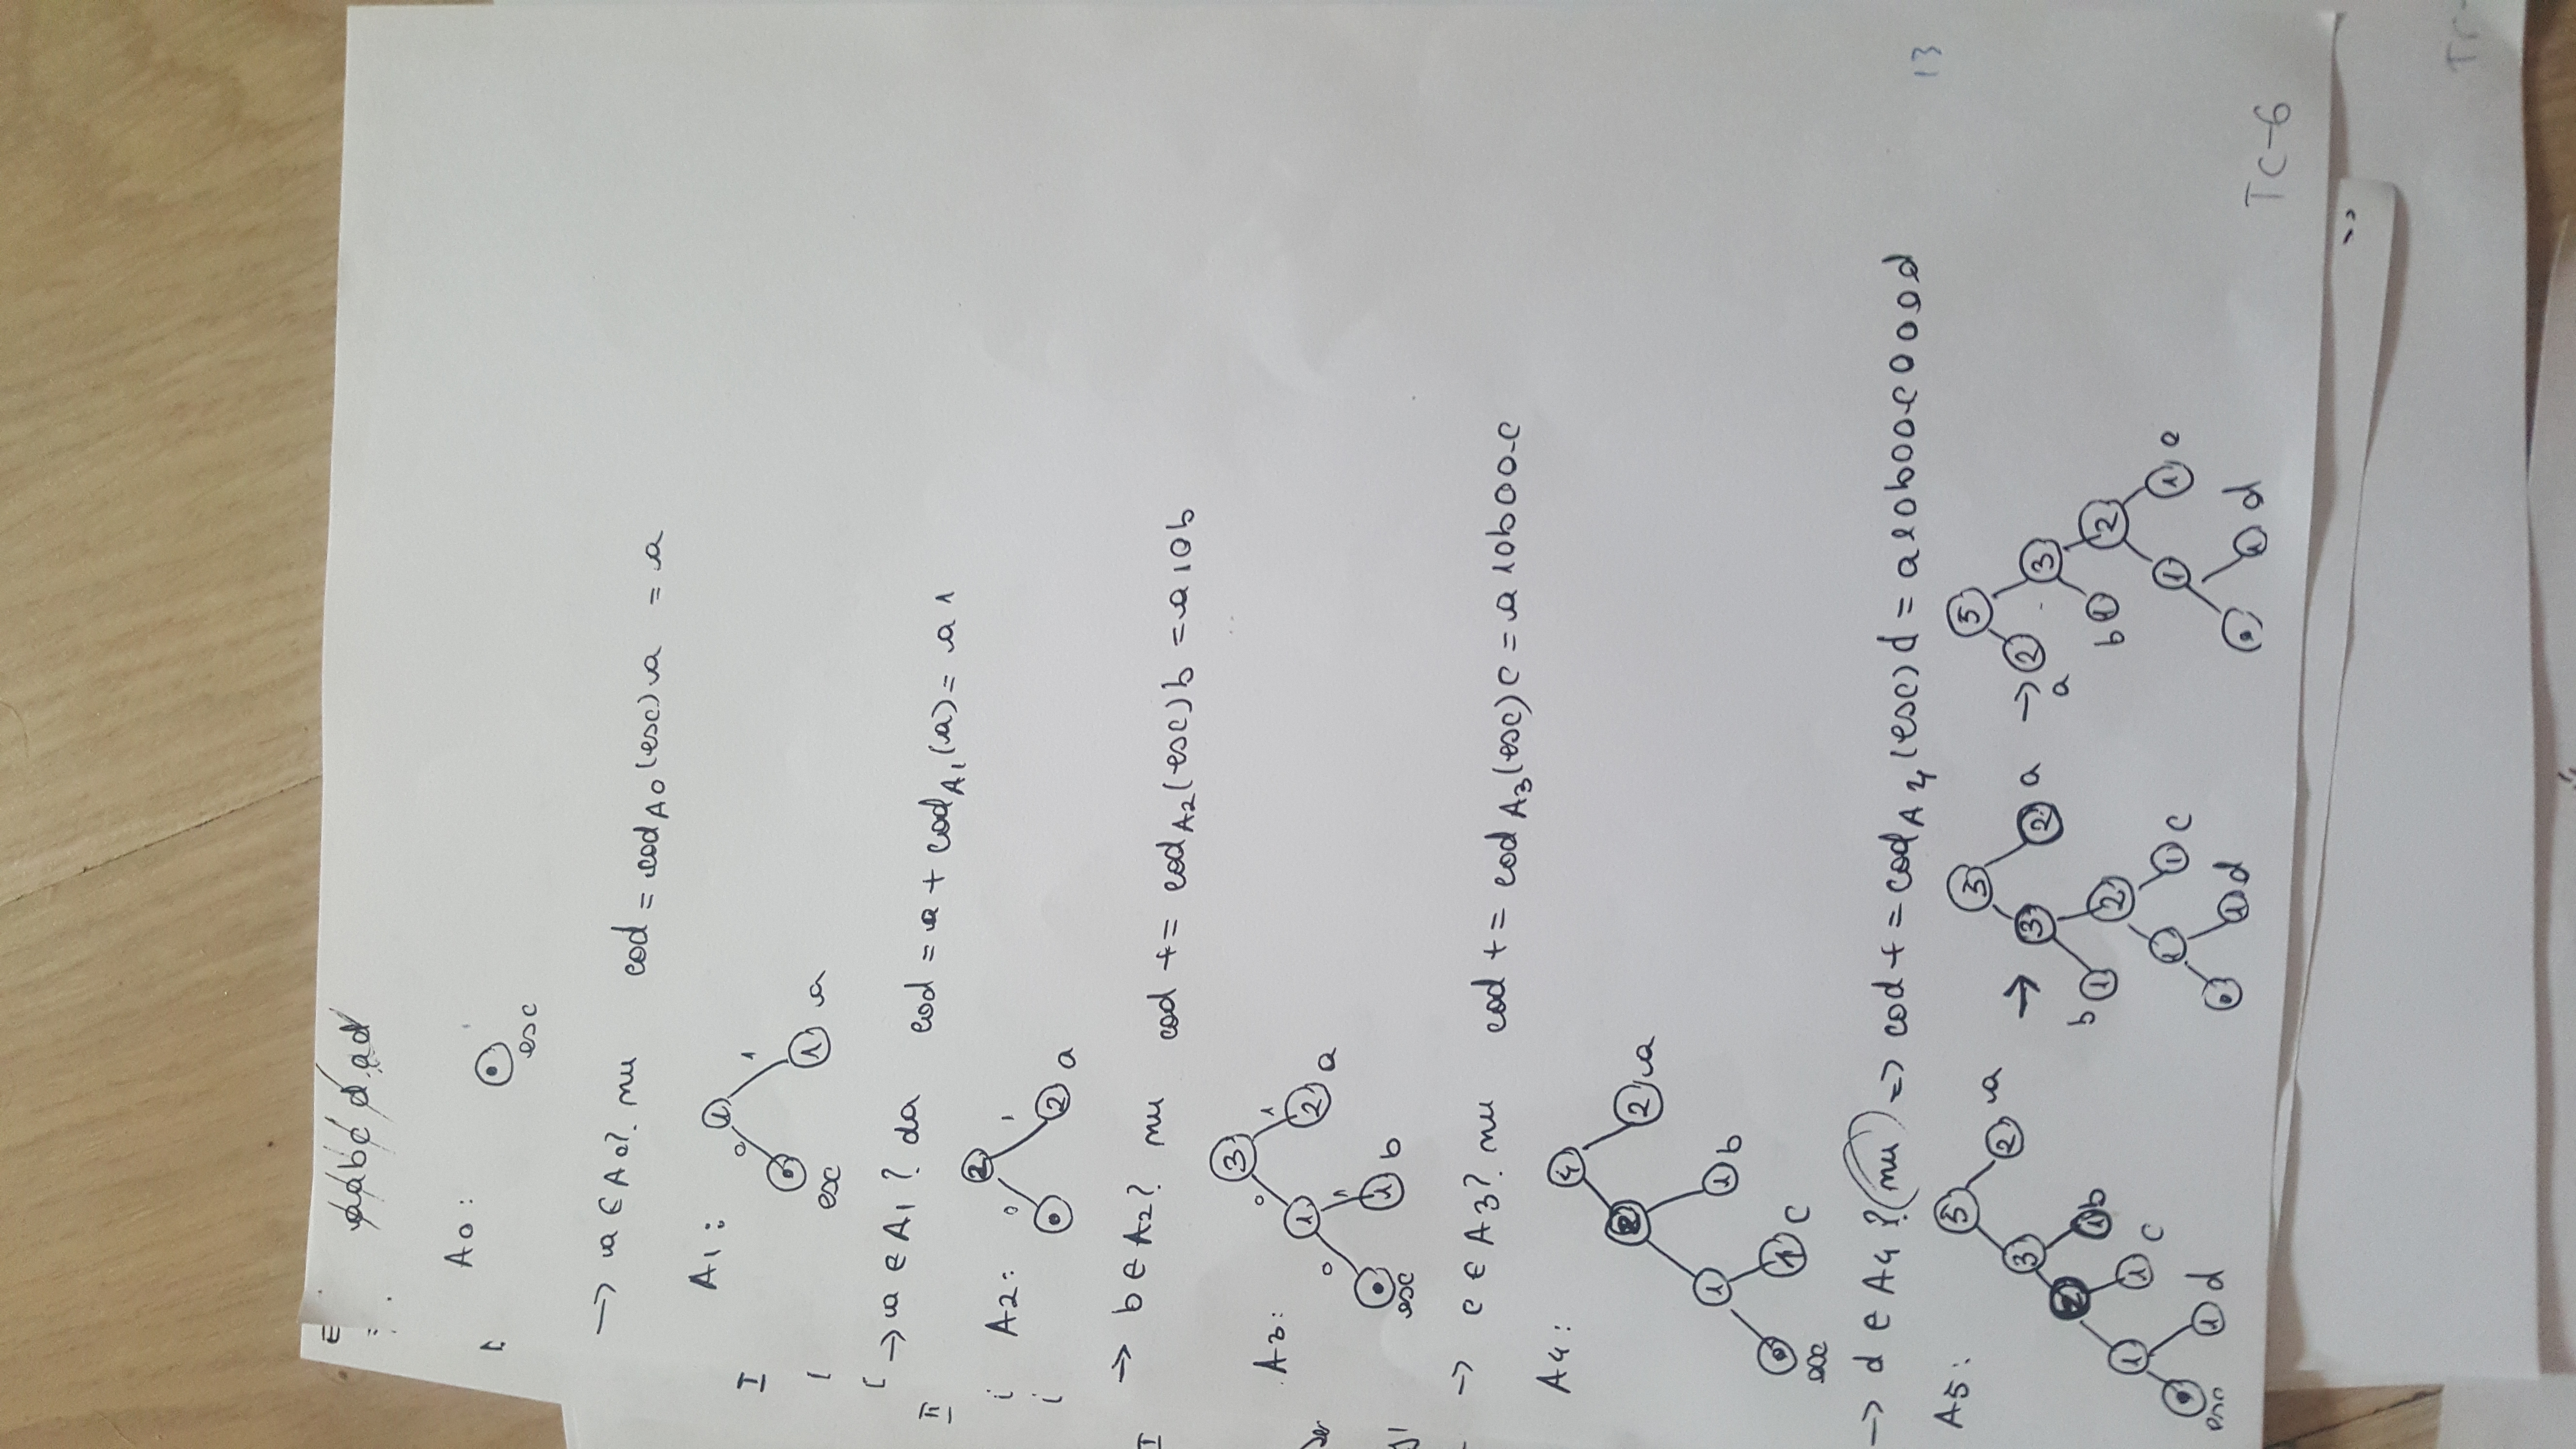 aabcdad
A0:
esc
→ a ∈ A0? nu cod = cod A0 (esc) a = a
A1:
1
0 1
1 a
esc
→ a ∈ A1? da cod = a + cod A1 (a) = a1
A2:
2
0 1
2 a
→ b ∈ A2? nu cod += cod A2 (esc) b = a10b
A3:
3
0 1
1 2 a
0 1
1 b
esc
→ c ∈ A3? nu cod += cod A3 (esc) c = a10b00c
A4:
4
2 2 a
1 1 b
1 c
esc
→ d ∈ A4? nu => cod += cod A4 (esc) d = a10b00c000d
13
A5:
5 → 5 → 5
3 2 a 3 2 a 2 a 3
2 1 b b 1 2 b 1 2
1 1 c 1 1 c 1 1 c
esc 1 d 1 d 1 d
TC-6